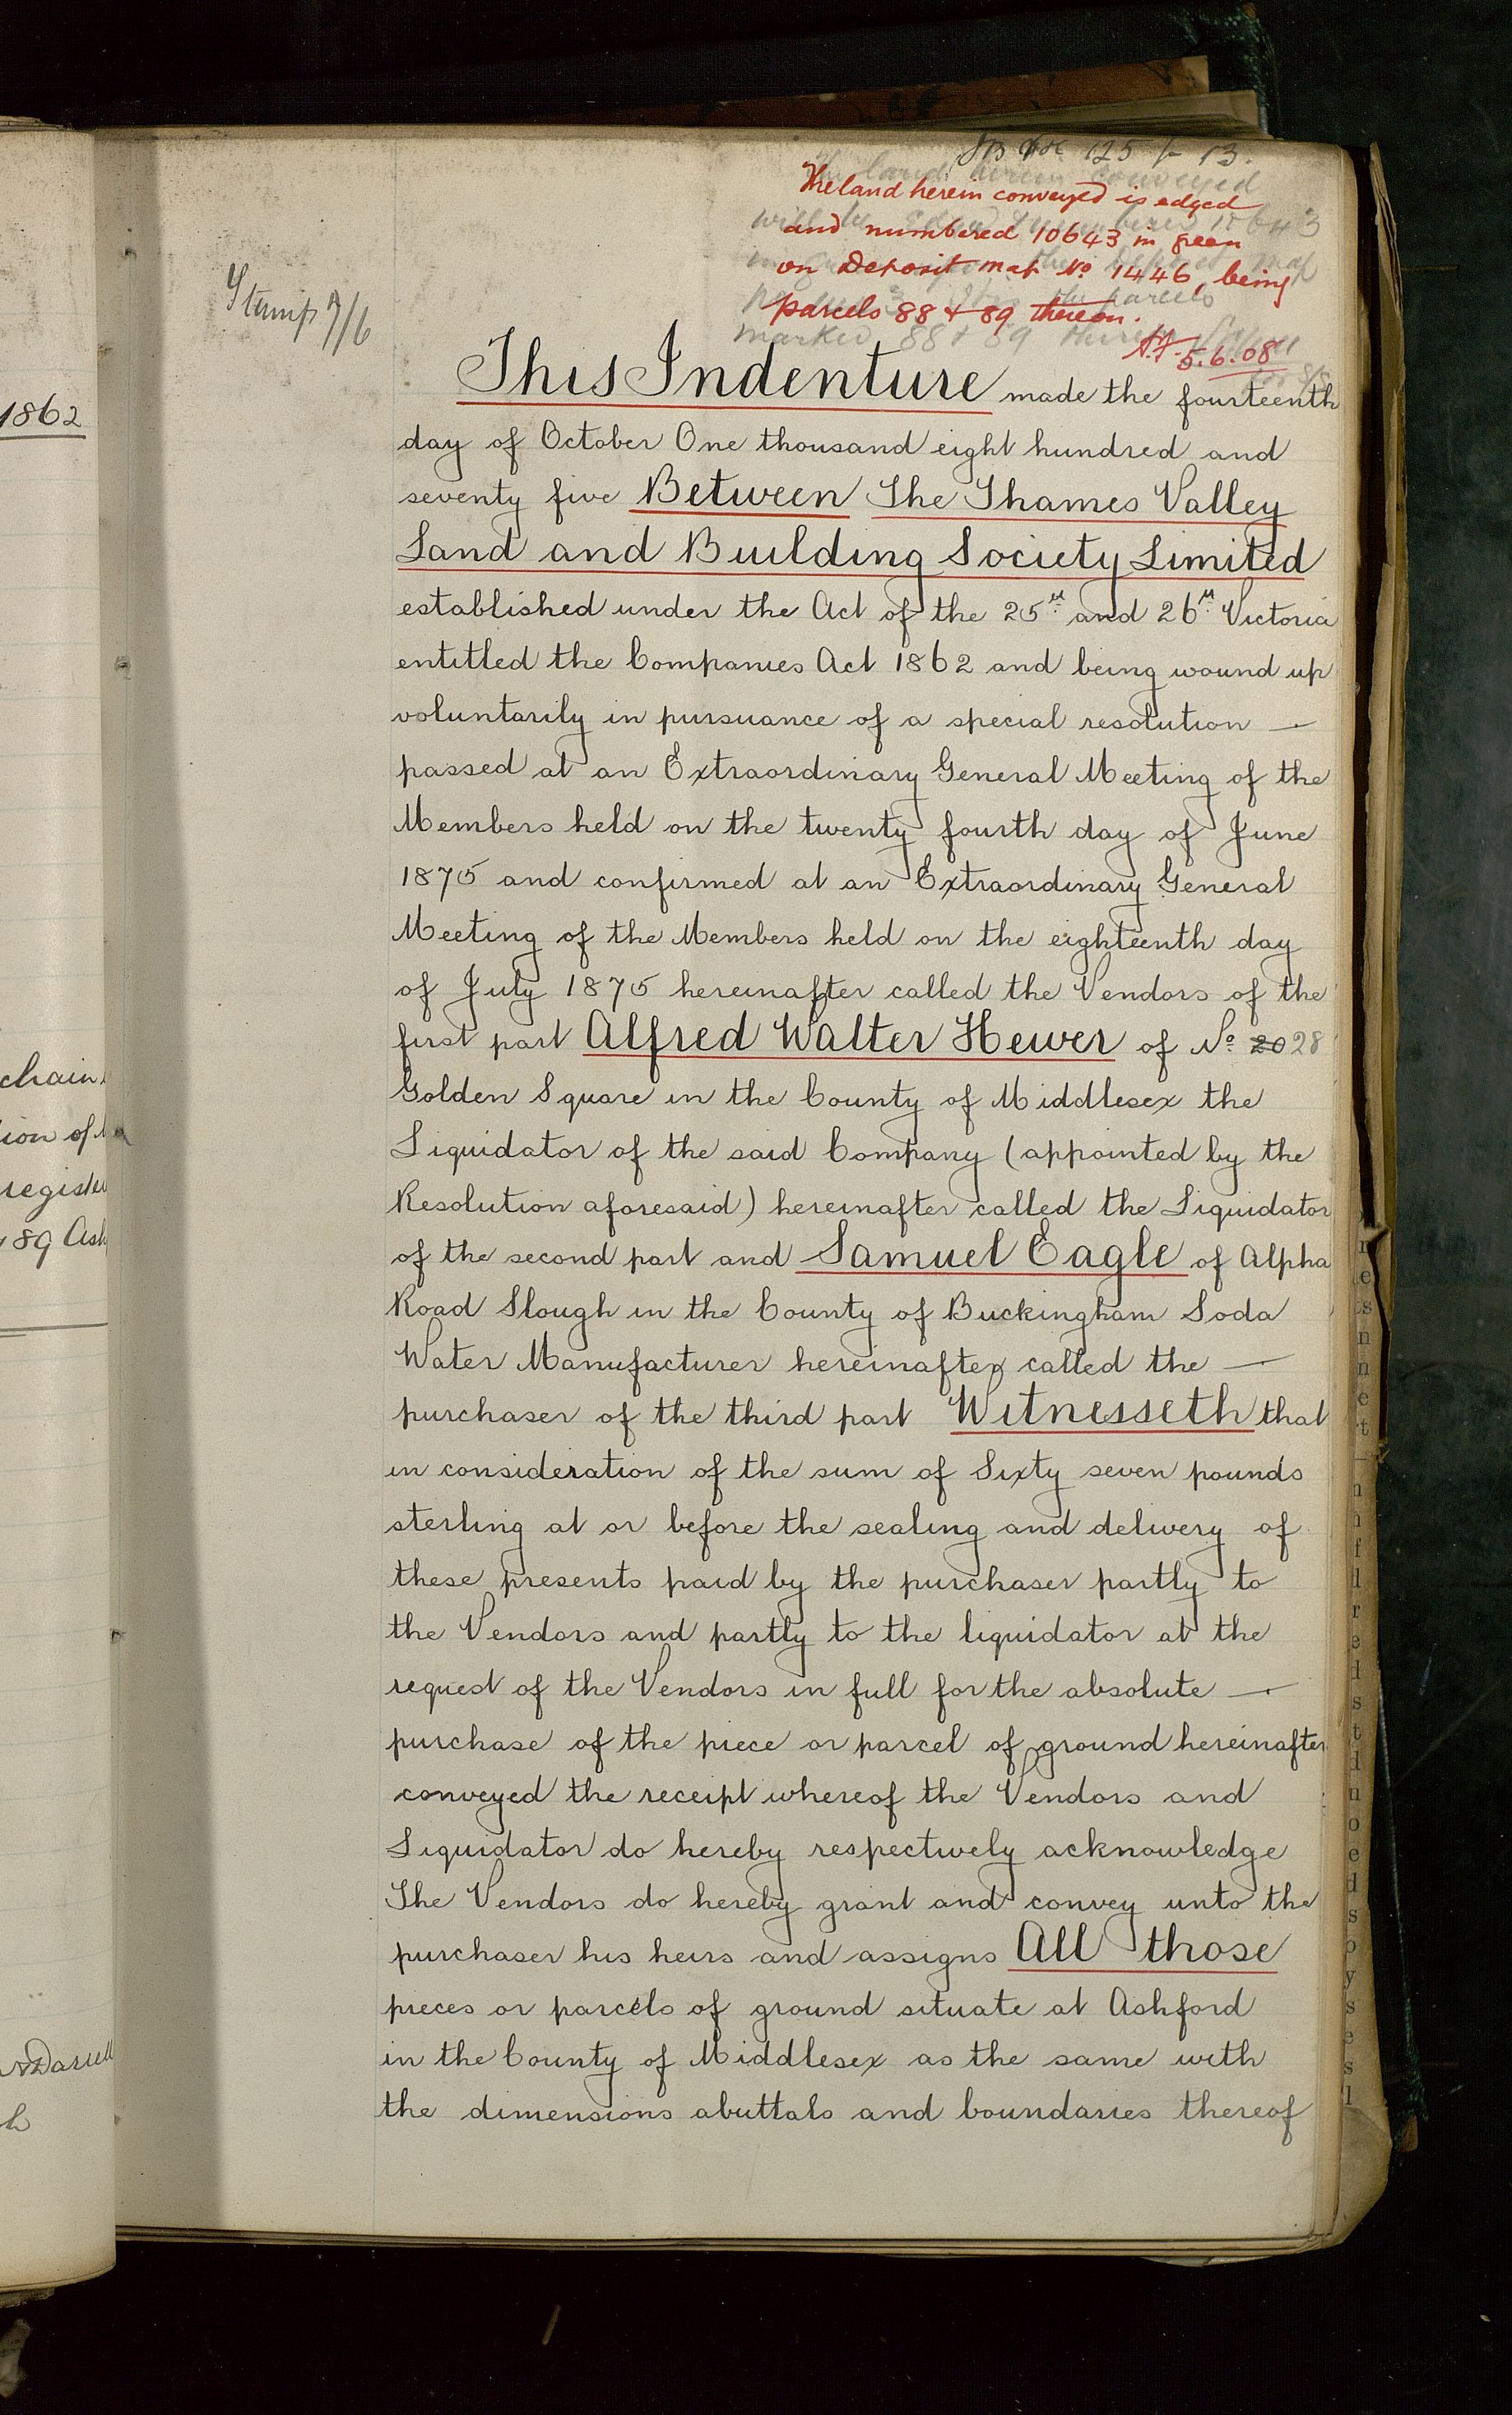 125 f 13.
The land herein conveyed is edged
and numbered 10643 in green
on Deposit map No 1446, being
parcels 88 & 89 thereon.
5.6.08
Stamp 7/6
This Indenture made the fourteenth
day of October One thousand eight hundred and
seventy five Between The Thames Valley
Land and Building Society Limited
established under the Act of the 25th and 26th Victoria
entitled the Companies Act 1862 and being wound up
voluntarily in pursuance of a special resolution —
passed at an Extraordinary General Meeting of the
Members held on the twenty fourth day of June
1875 and confirmed at an Extraordinary General
Meeting of the Members held on the eighteenth day
of July 1875 hereinafter called the Vendors of the
first part Alfred Walter Hewer of No 20 28
Golden Square in the County of Middlesex the
Liquidator of the said Company (appointed by the
Resolution aforesaid) hereinafter called the Liquidator
of the second part and Samuel Eagle of Alpha
Road Slough in the County of Buckingham Soda
Water Manufacturer hereinafter called the —
purchaser of the third part Witnesseth that
in consideration of the sum of Sixty seven pounds
sterling at or before the sealing and delivery of
these presents paid by the purchaser partly to
the Vendors and partly to the liquidator at the
request of the Vendors in full for the absolute —
purchase of the piece or parcel of ground hereinafter
conveyed the receipt whereof the Vendors and
Liquidator do hereby respectively acknowledge
The Vendors do hereby grant and convey unto the
purchaser his heirs and assigns All those
pieces or parcels of ground situate at Ashford
in the County of Middlesex as the same with
the dimensions abuttals and boundaries thereof
1862
chain
ion of
register
89 Ash